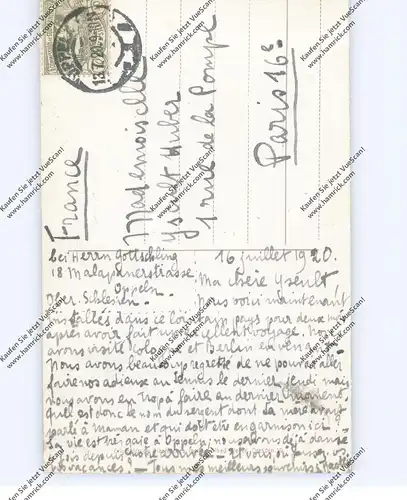 France
Mademoiselle
Yseult Huber
1 rue de la Pompe
Paris 16e
bei Herrn Gottschling
18 Malapanerstrasse
Oppeln
Ober. Schlesien.
16 juillet 1920.
Ma chère Yseult
Nous voici maintenant
installés dans ce lointain pays pour deux
après avoir fait un excellent voyage. nous
avons visité et Berlin en
Nous avons beaucoup regretté de ne pouvoir aller
faire nos adieux au tennis le dernier jeudi mais
nous avons eu trop à faire au dernier moment.
quel est donc le nom du sergent dont ta mère avait
parlé à maman et qui doit être en garnison ici
La vie est très gaie à Oppeln, nous avons déjà dansé
fois depuis notre arrivée et vous où
vos vacances. Tous mes meilleurs souvenirs
Kaufen Sie jetzt VueScan!
www.hamrick.com